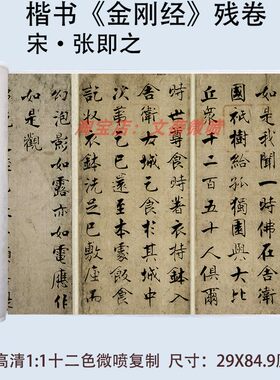 楷书《金刚经》残卷
宋·张即之
如是我聞一時佛在舍衛
國祇樹給孤獨園與大比
丘衆千二百五十人俱爾
時世尊食時著衣持鉢入
舍衛大城乞食於其城中
次第乞已還至本處飯食
訖收衣鉢洗足已敷座而
幻泡影如露亦如電應作
如是觀
淘宝店：微喷
高清1:1十二色微喷复制 尺寸：29X84.9